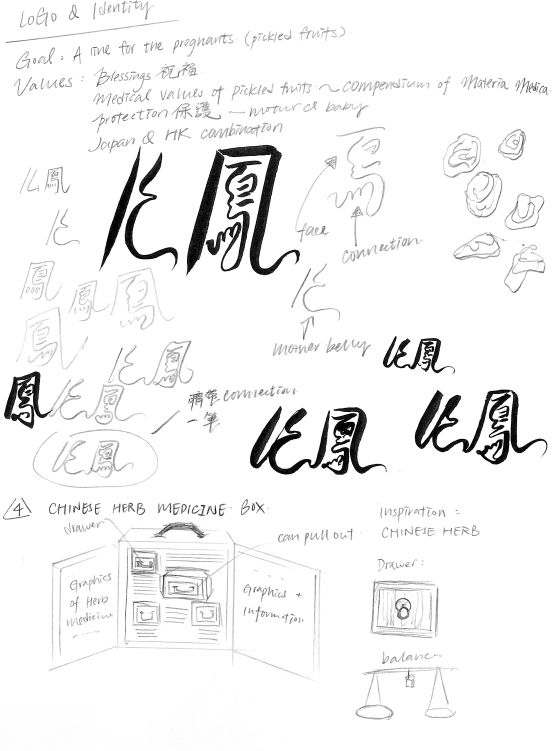 LOGO & Identity
Goal: A line for the pregnants (pickled fruits)
Values: Blessings 祝福
Medical values of pickled fruits ~ compendium of Materia Medica
protection 保護 — mother & baby
Japan & HK combination
鳳
鳳
face
connection
鳳
鳳
鳳
鳳
鳳
mother belly
鳳
鳳
鳳
鳳
臍帶 connection
一筆
鳳
鳳
鳳
4 CHINESE HERB MEDICINE BOX.
drawer
can pull out
Graphics
of Herb
Medicine
Graphics +
Information
Inspiration:
CHINESE HERB
Drawer:
balance